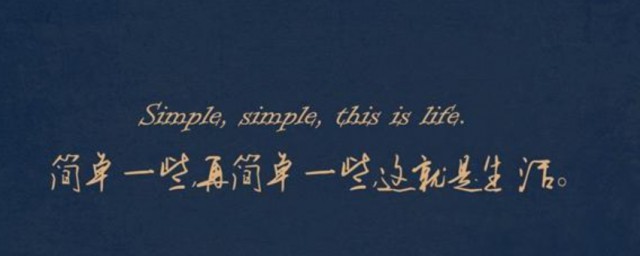 Simple, simple, this is life.
简单一些,再简单一些,这就是生活。